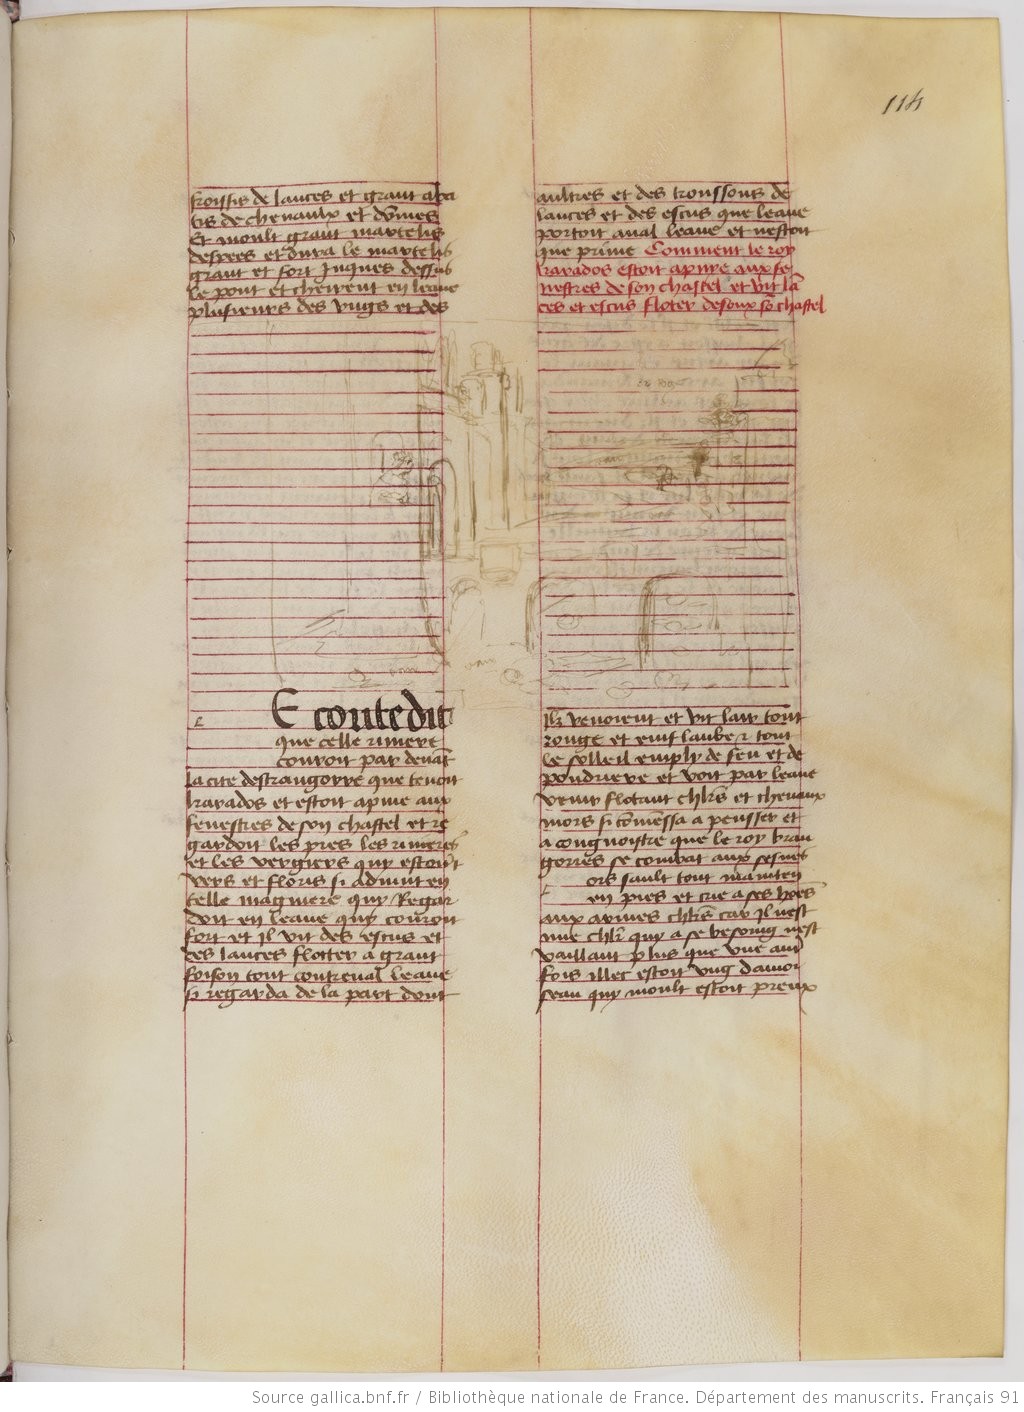 114
froissis de lances et grant aba
tis de chevaulx et dõmes
Et moult grant martelis
despees et dura le martelis
grant et fort Jusques dessus
le pont et cheirent en leaue
plusieurs des vngs et des
aultres et des troussons de
lances et des escus que leaue
portoit aual leaue et nestoit
que prime Comment le roy
karados estoit apuye aux fe
nestres de son chastel et vit lã
ces et escus floter desoux sõ chastel
E conte dit
que celle riuiere
couroit par deuãt
la cite destrangorre que tenoit
karados et estoit apuie aux
fenestres de son chastel et re
gardoit les pres les riuieres
et les vergiers quy estoiẽt
vers et floris si aduint en
telle magniere quy Regar
doit en leaue quy couroit
fort et Jl vit des escus et
des lances flotter a grant
foison tout contreual leaue
si regarda de la part dont
Jlz venoient et vit lair tout
rouge et enuf laube & tout
le solleil emply de feu et de
pouldriere et voit par leaue
venir flotant chlrs et cheuaux
mors si cõmessa a pensser et
a congnoistre que le roy bran
gorres se combat aux sesnes
ors sault tout mainten
en pies et crie a ses hões
aux armes chlrs car Jl nest
mie chlr quy a se besoing nest
vaillant plus que vne aut
fois illec estoit vng damoi
seau quy moult estoit preux
Source gallica.bnf.fr / Bibliothèque nationale de France. Département des manuscrits. Français 91